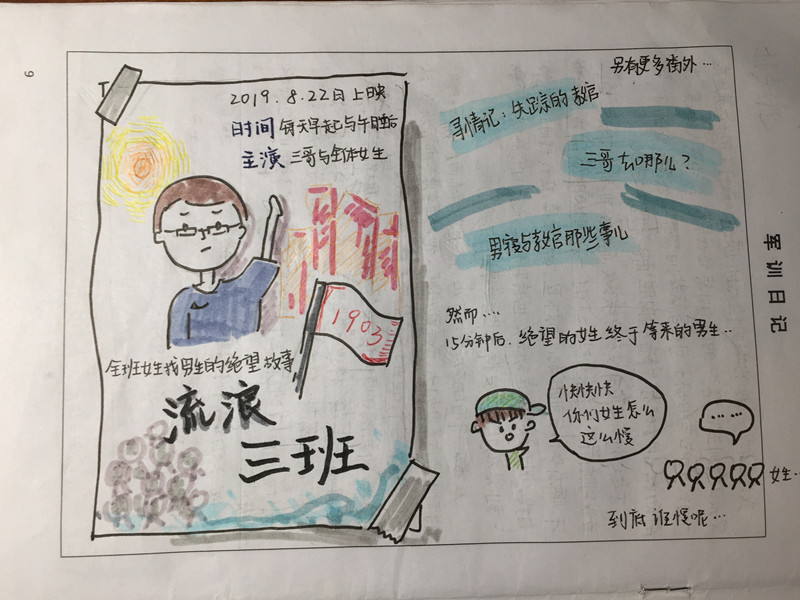 2019.8.22日上映
时间 每天早起与午睡后
主演 三哥与全体女生
1903
全班女生找男生的绝望故事
流浪
三班
另有更多番外…
寻情记：失踪的教官
三哥去哪儿？
男寝与教官那些事儿
然而…
15分钟后，绝望的女生终于等来的男生..
快快快
你们女生怎么
这么慢
……
女生…
到底谁慢呢…
军训日记
9